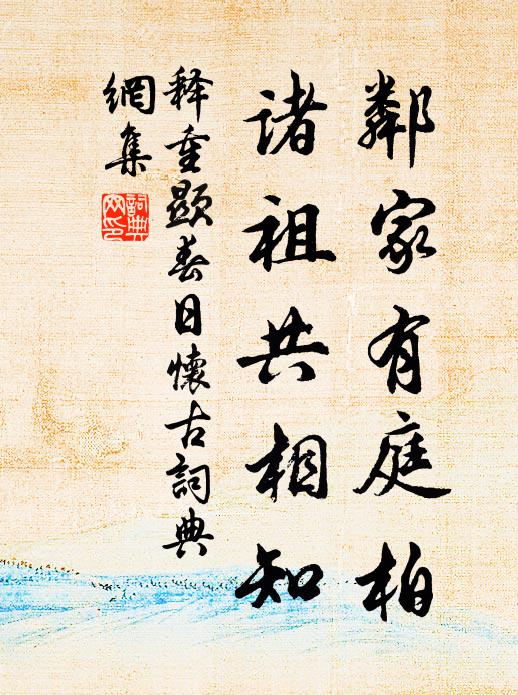 鄰家有庭柏
诸祖共相知
释重显春日懷古詞典
網集
詞典
网印